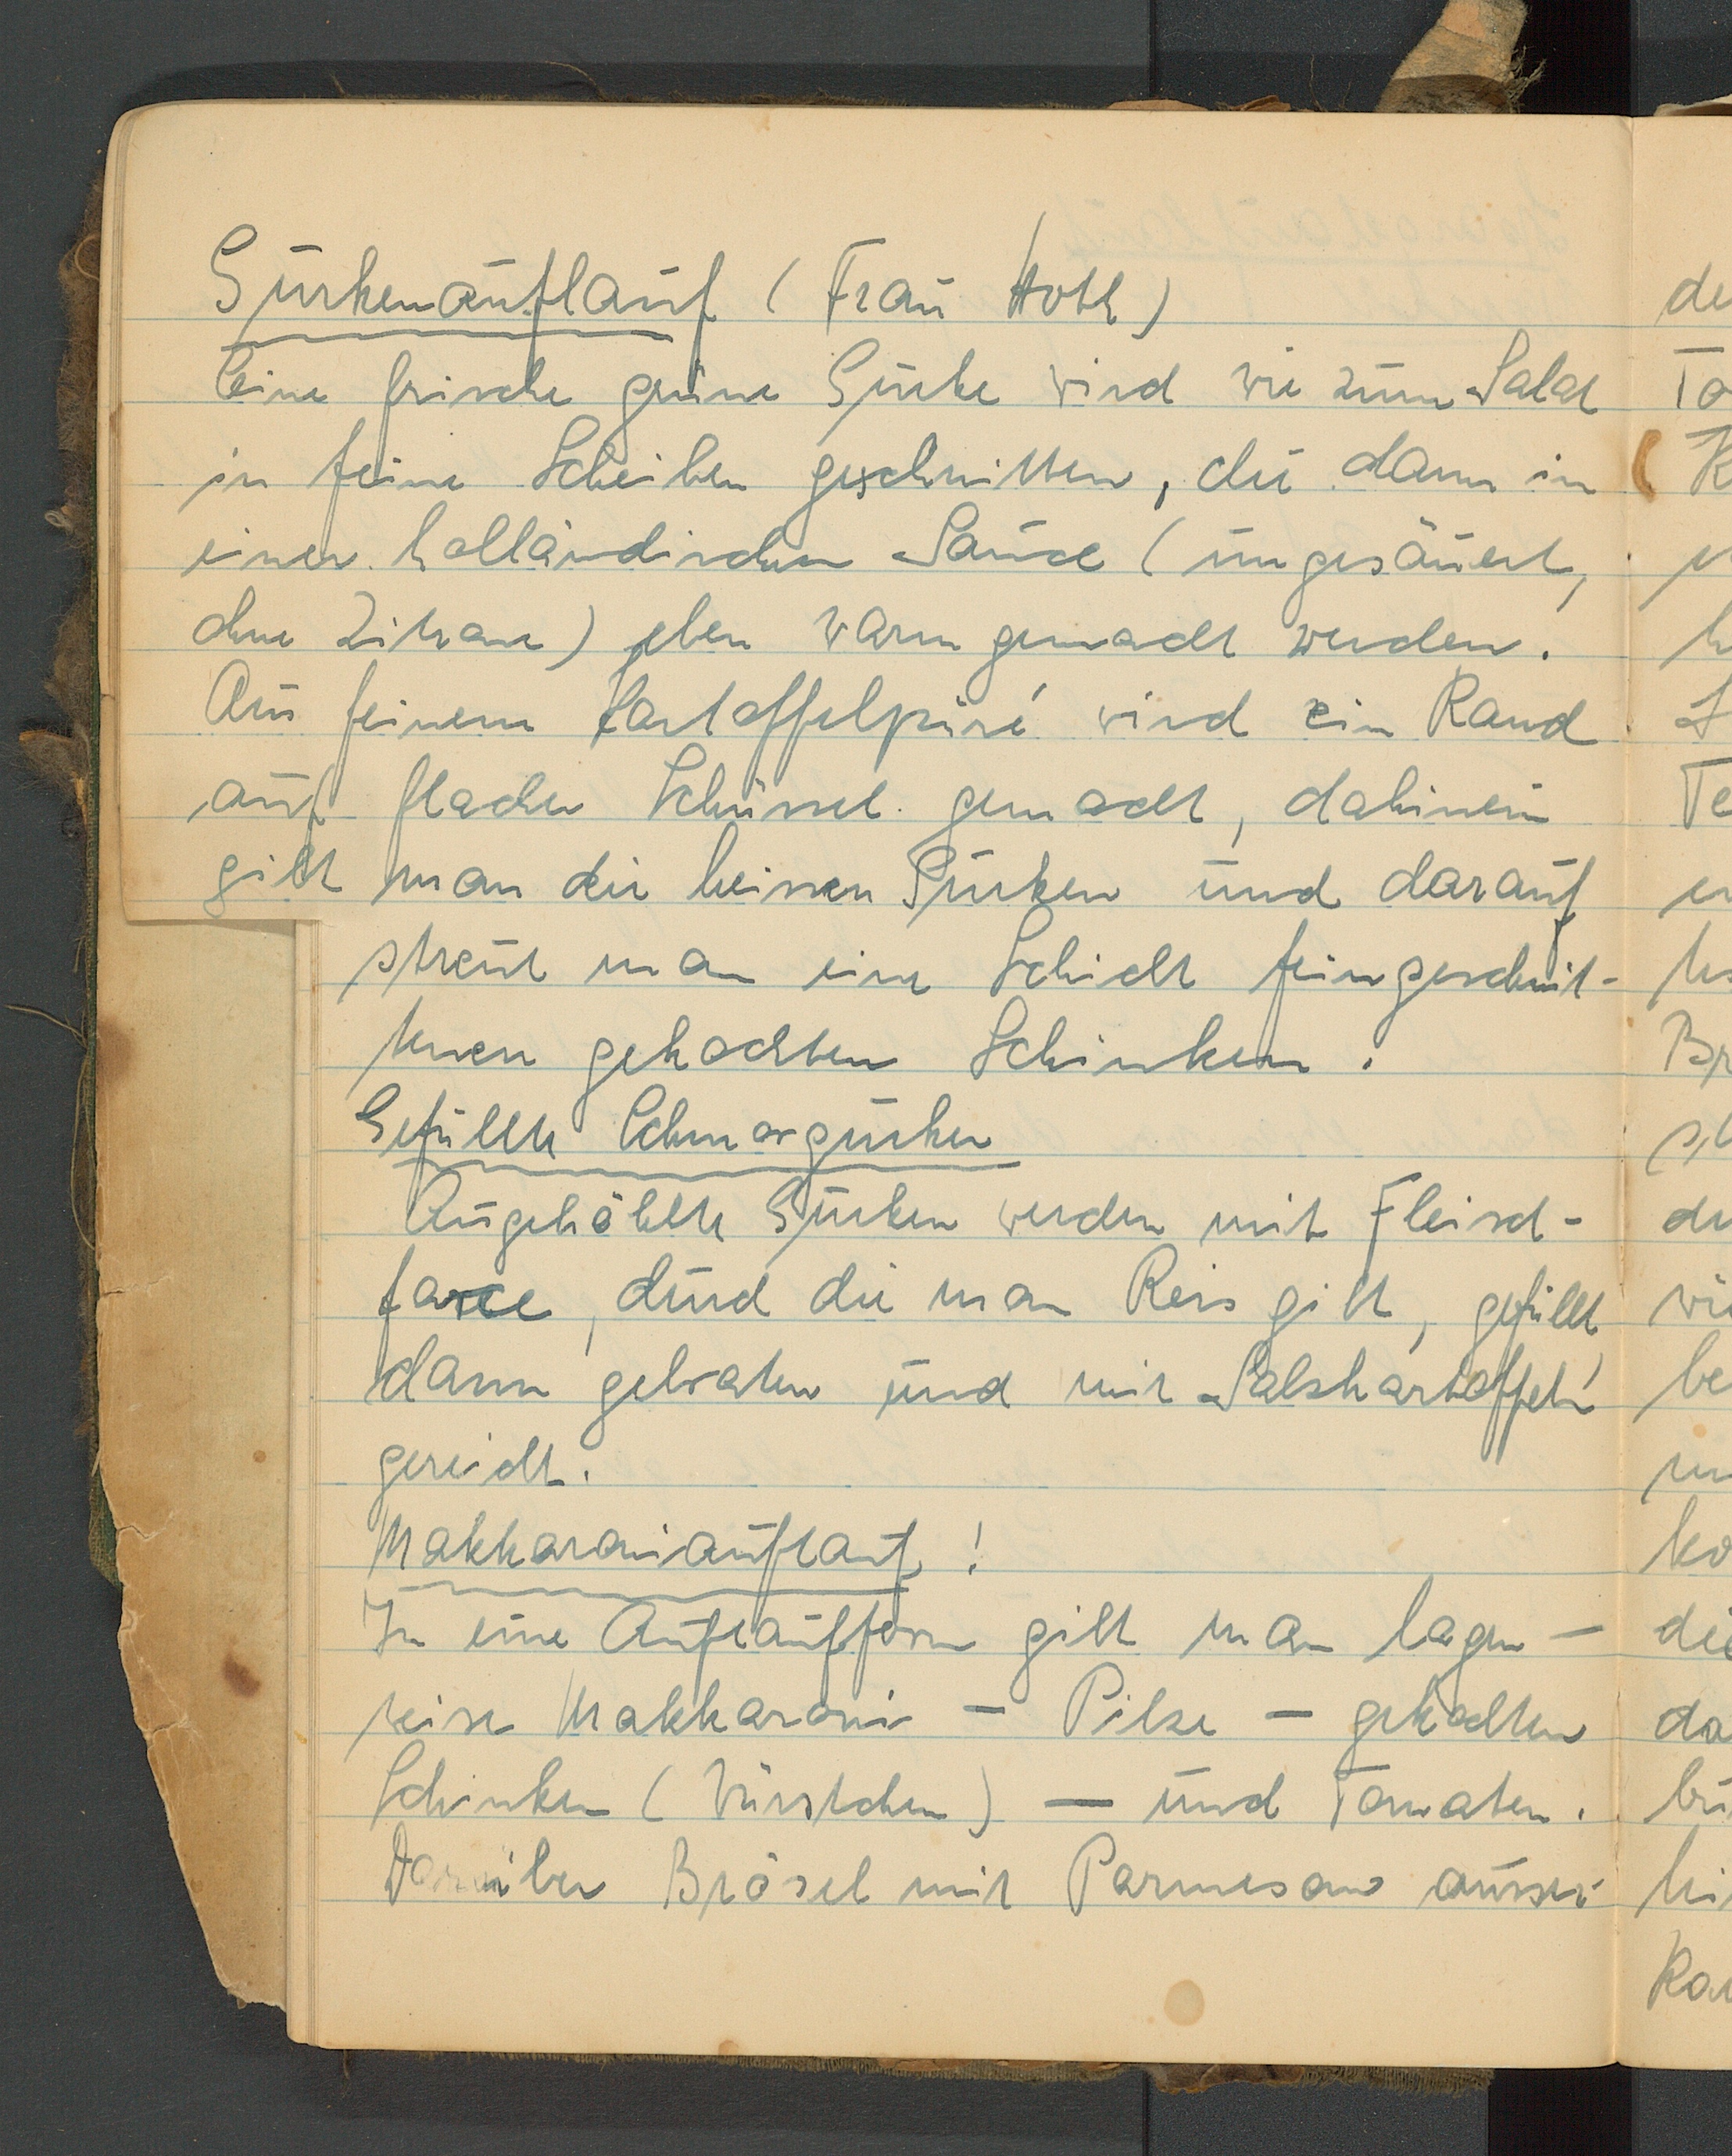 Gurkenauflauf (Frau Hoth)
Eine frische grüne Gurke wird wie zum Salat
in feine Scheiben geschnitten, die dann in
einer holländischen Sauce (ungesäuert,
ohne Zitrone) eben warm gemacht werden.
Aus feinem Kartoffelpüré wird ein Rand
auf flacher Schüssel gemacht, dahinein
gibt man die heissen Gurken und darauf
streut man eine Schicht feingeschnit-
tenen gekochten Schinken.
Gefüllte Schmorgurken
Ausgehöhlte Gurken werden mit Fleisch-
farce, durch die man Reis gibt, gefüllt
dann gebraten und mit Salzkartoffeln
gereicht.
Makkaroniauflauf!
In eine Auflaufform gibt man lagen-
weise Makkaroni - Pilze - gekochten
Schinken (Würstchen) - und Tomaten.
Darüber Brösel mit Parmesan
de
To
K
h
Te
Br
wie
be
ko
die
da
Kar